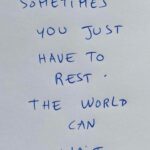 SOMETIMES
YOU JUST
HAVE TO
REST.
THE WORLD
CAN